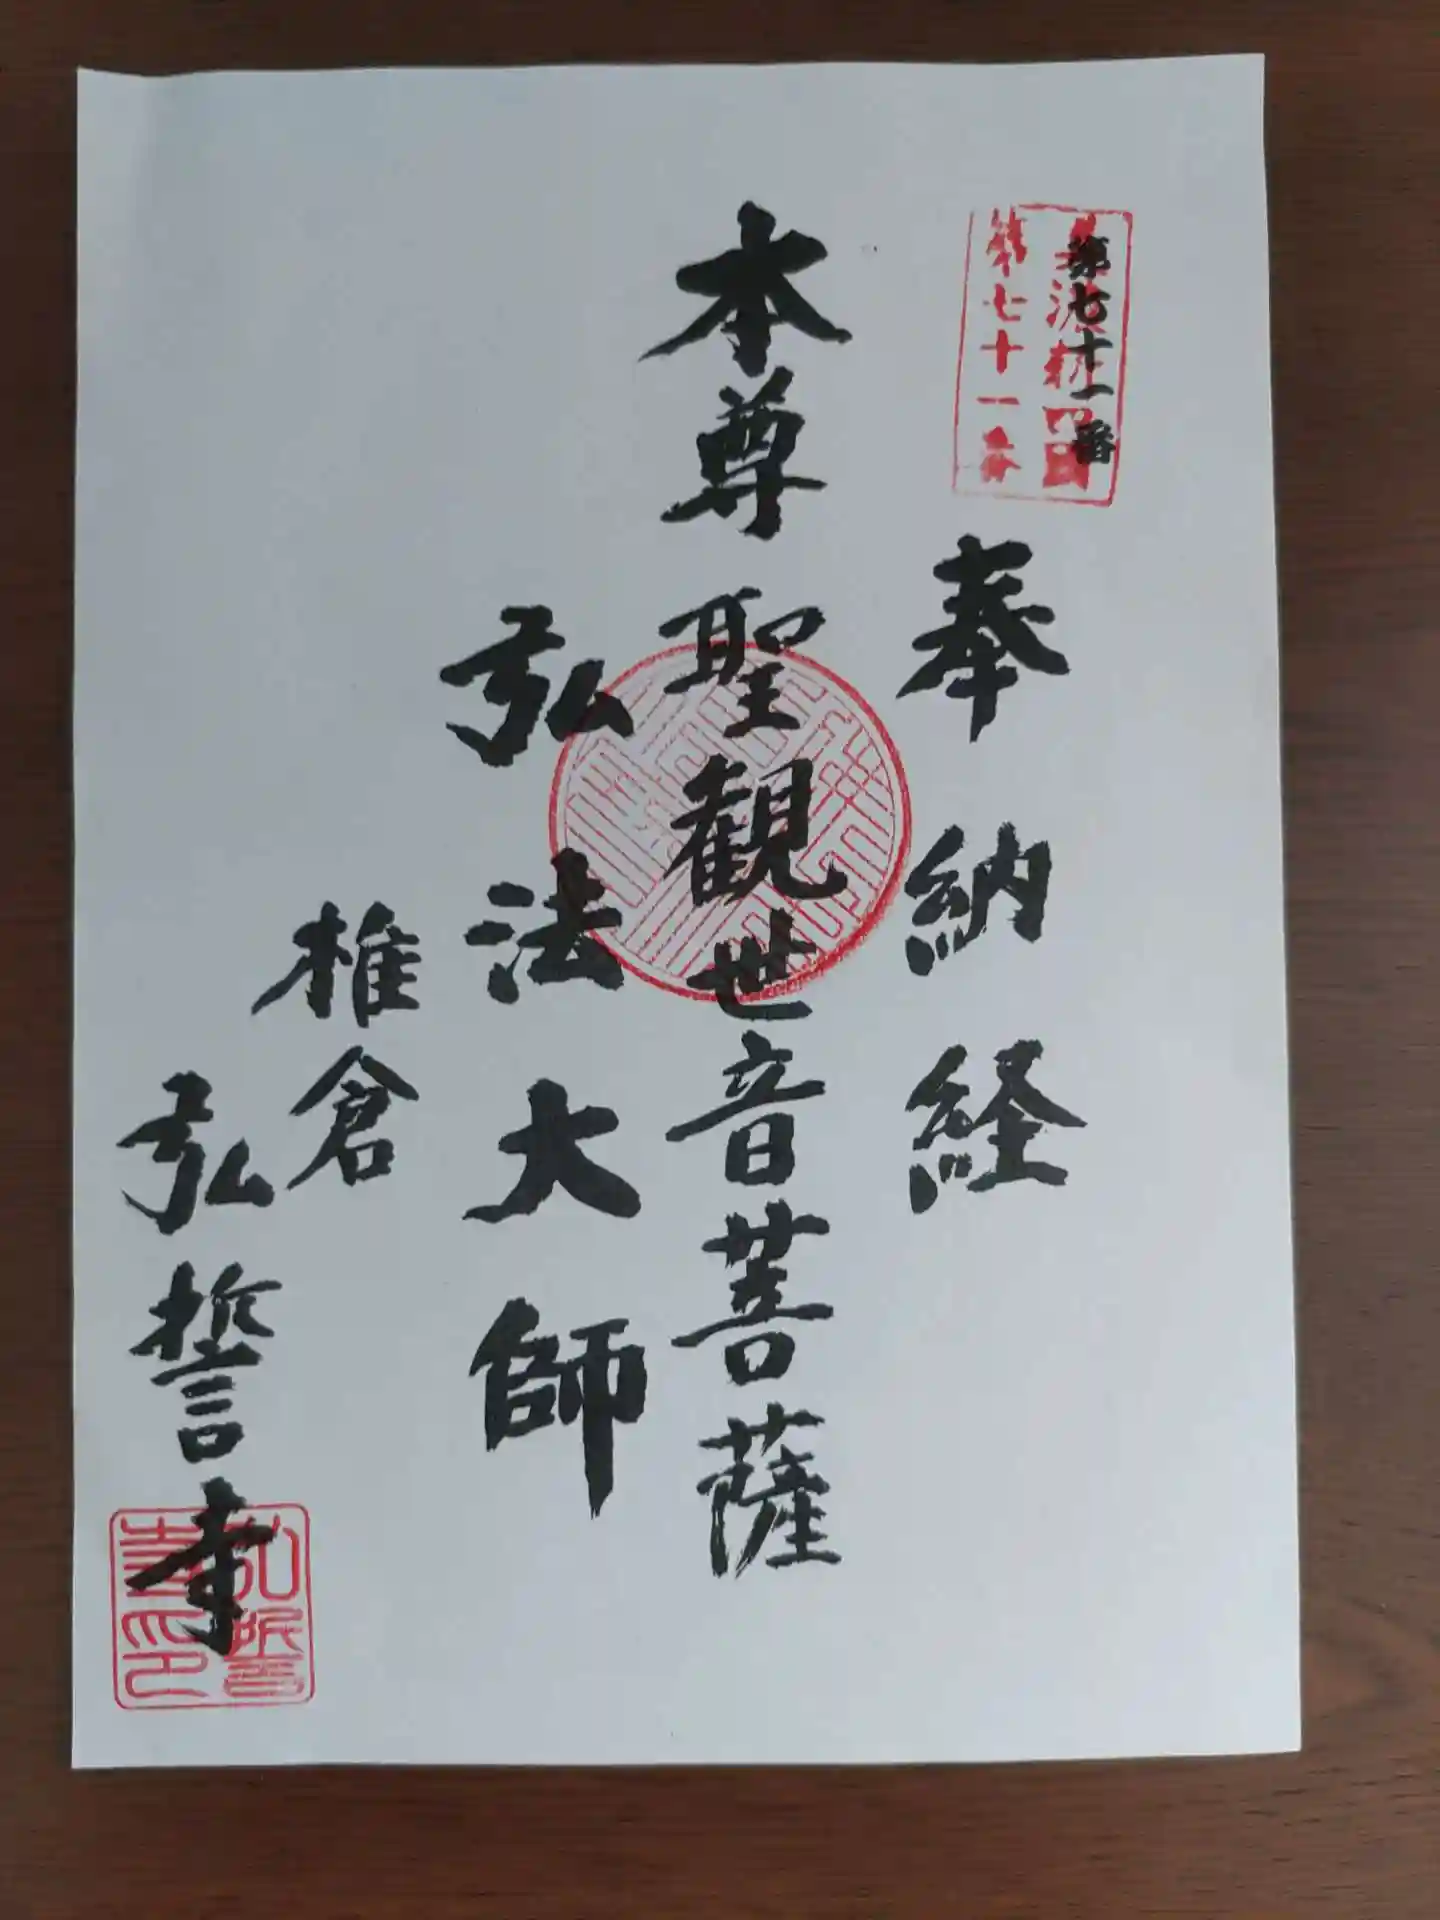 第七十一番
美濃新四国
第七十一番
奉納経
本尊聖観世音菩薩
弘法大師
椎倉
弘誓寺
弘誓
寺印